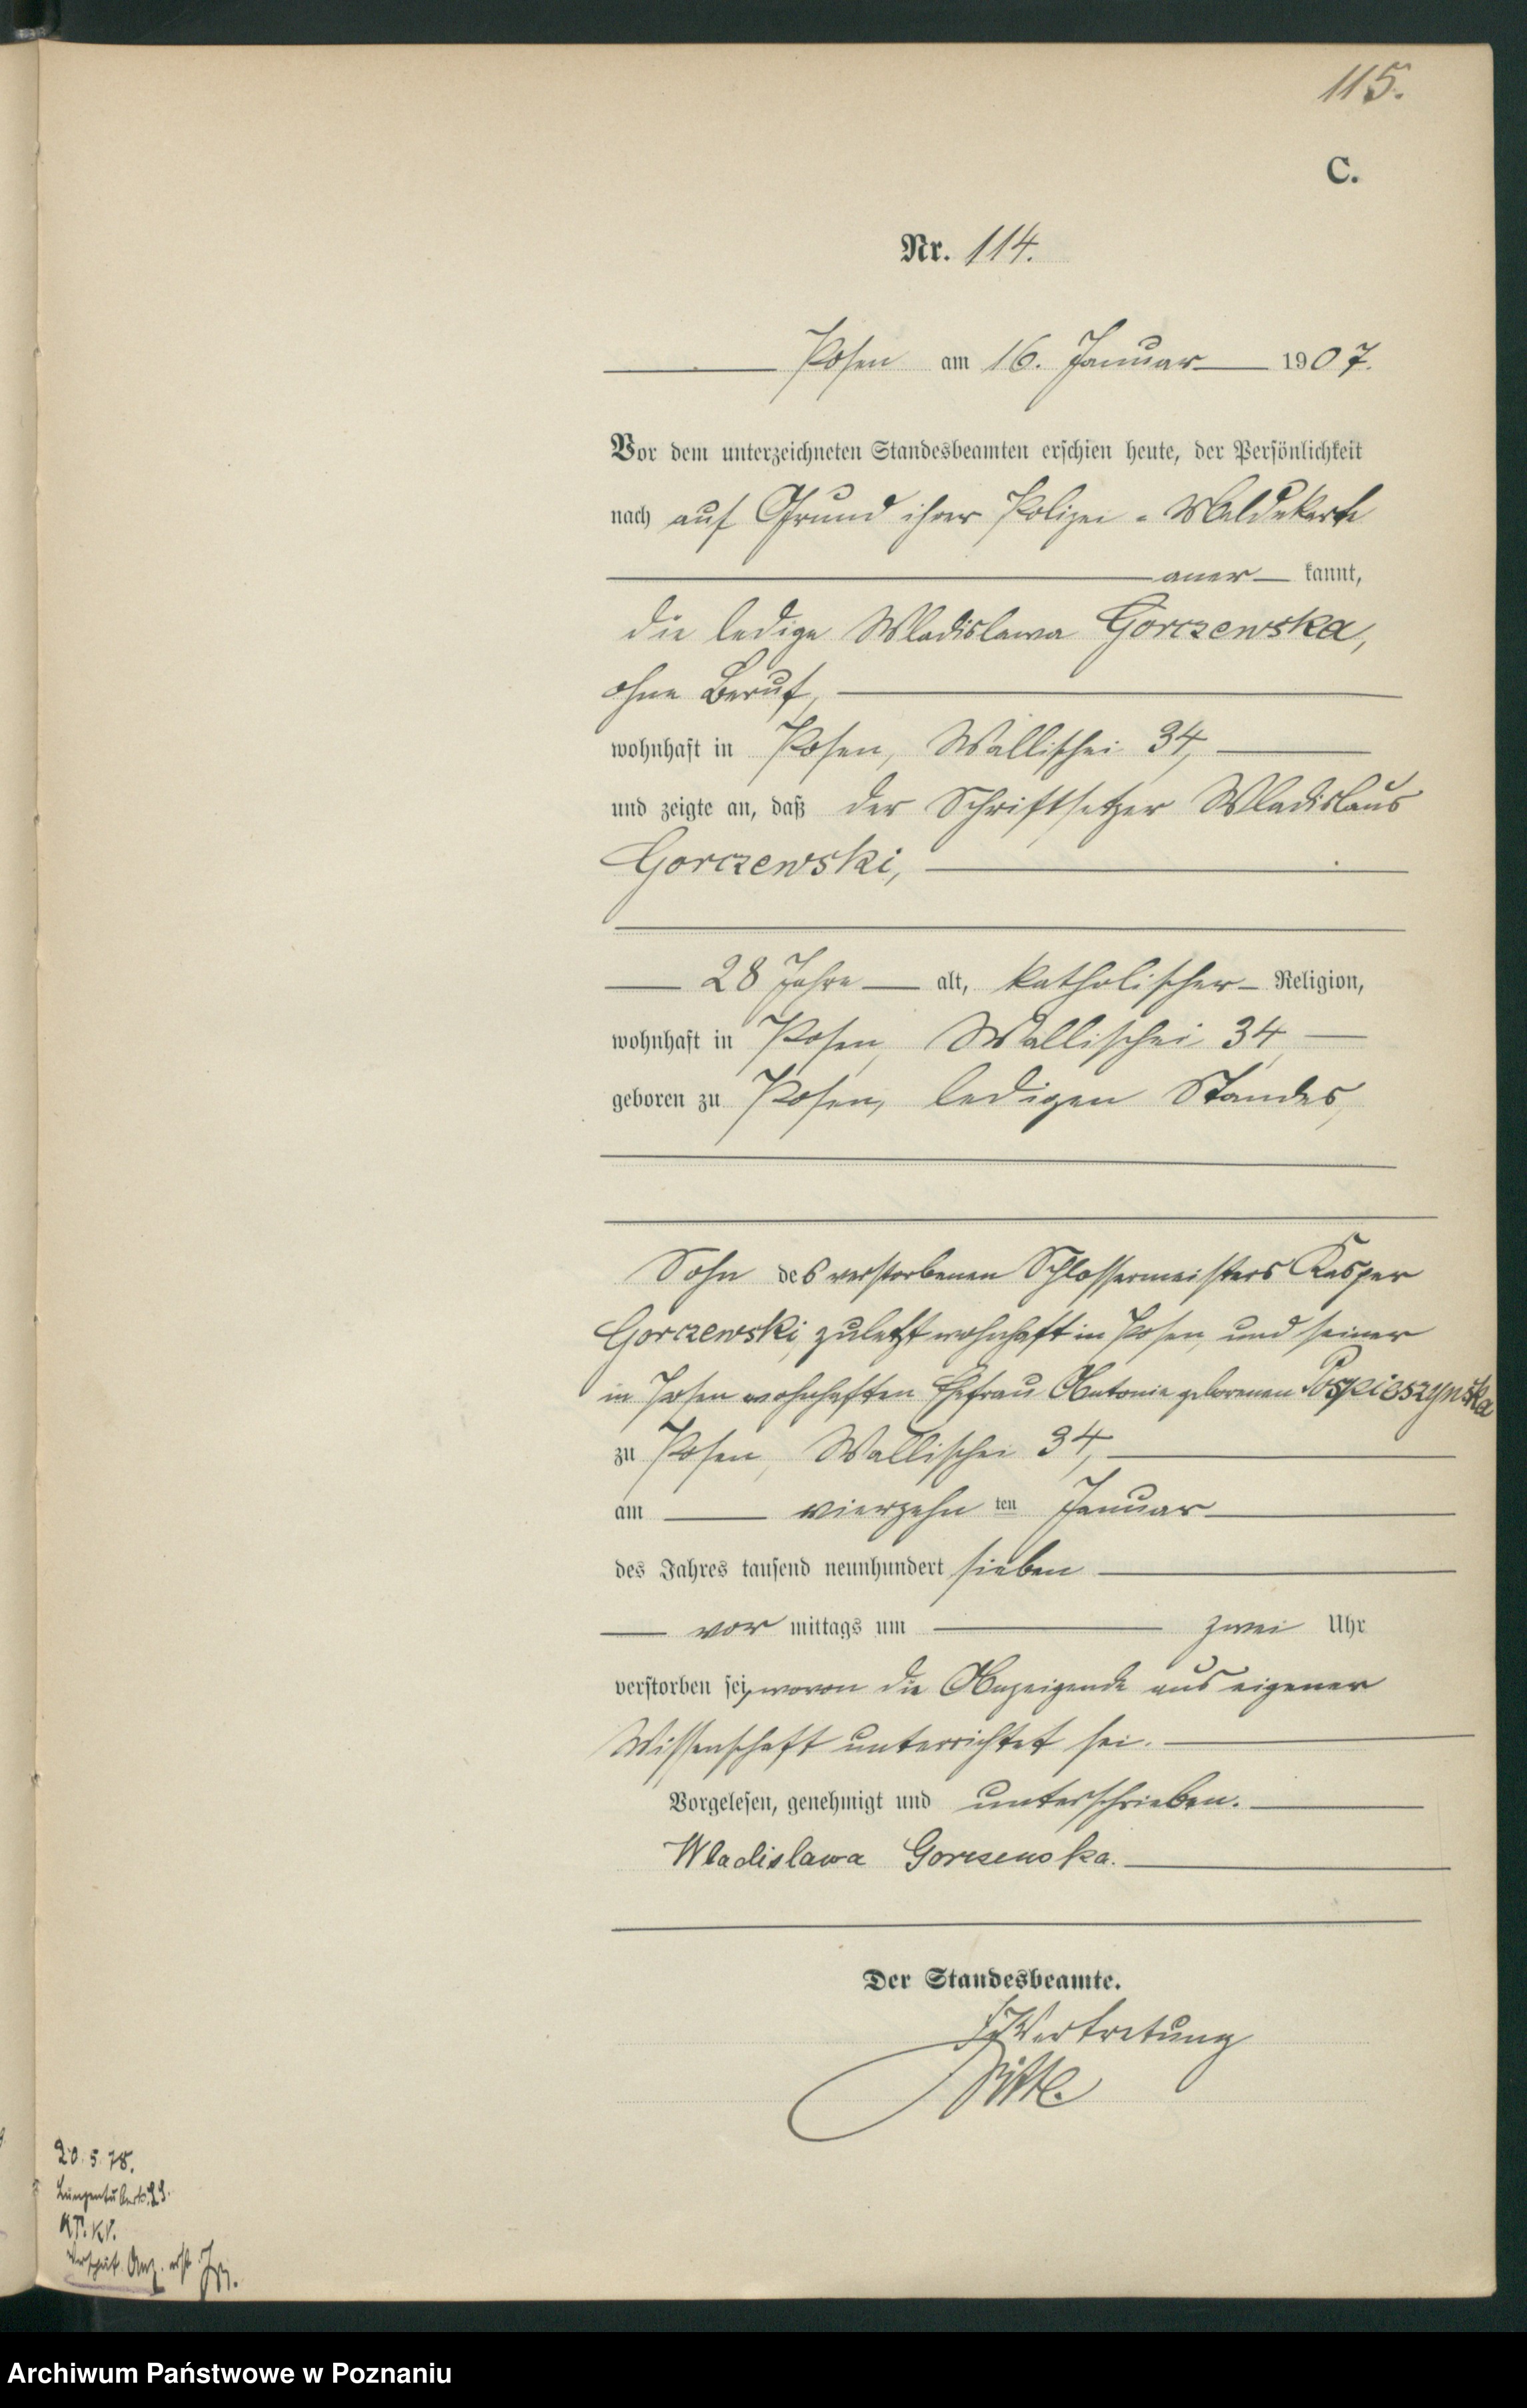 115.
C.
Nr. 114.
Posen am 16. Januar 1907.
Vor dem unterzeichneten Standesbeamten erschien heute, der Persönlichkeit
nach auf Grund ihrer Polizei-Meldekarte
anerkannt,
die ledige Wladislawa Gorczewska,
ohne Beruf,
wohnhaft in Posen, Wallischei 34,
und zeigte an, daß der Schriftsetzer Wladislaus
Gorczewski,
28 Jahre alt, katholischer Religion,
wohnhaft in Posen, Wallischei 34,
geboren zu Posen, ledigen Standes,
Sohn des verstorbenen Schlossermeisters Kasper
Gorczewski, zuletzt wohnhaft in Posen, und seiner
in Posen wohnhaften Ehefrau Antonie geborenen Pospieszynska
zu Posen, Wallischei 34,
am vierzehn ten Januar
des Jahres tausend neunhundert sieben
vor mittags um zwei Uhr
verstorben sei, wovon die Anzeigende aus eigener
Wissenschaft unterrichtet sei.
Vorgelesen, genehmigt und unterschrieben.
Wladislawa Gorczewska.
Der Standesbeamte.
In Vertretung
20. 5. 78.
Archiwum Państwowe w Poznaniu